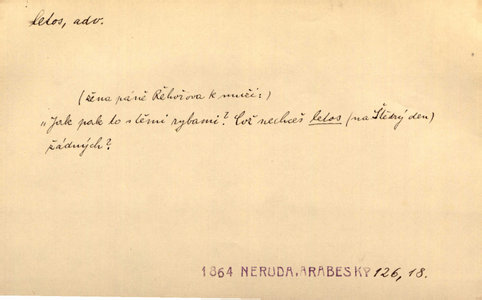 letos, adv.
(žena páně Řehořova k muži:)
„Jak pak to s těmi rybami? Což nechceš letos (na Štědrý den)
žádných?
1864 NERUDA, ARABESKY 126, 18.